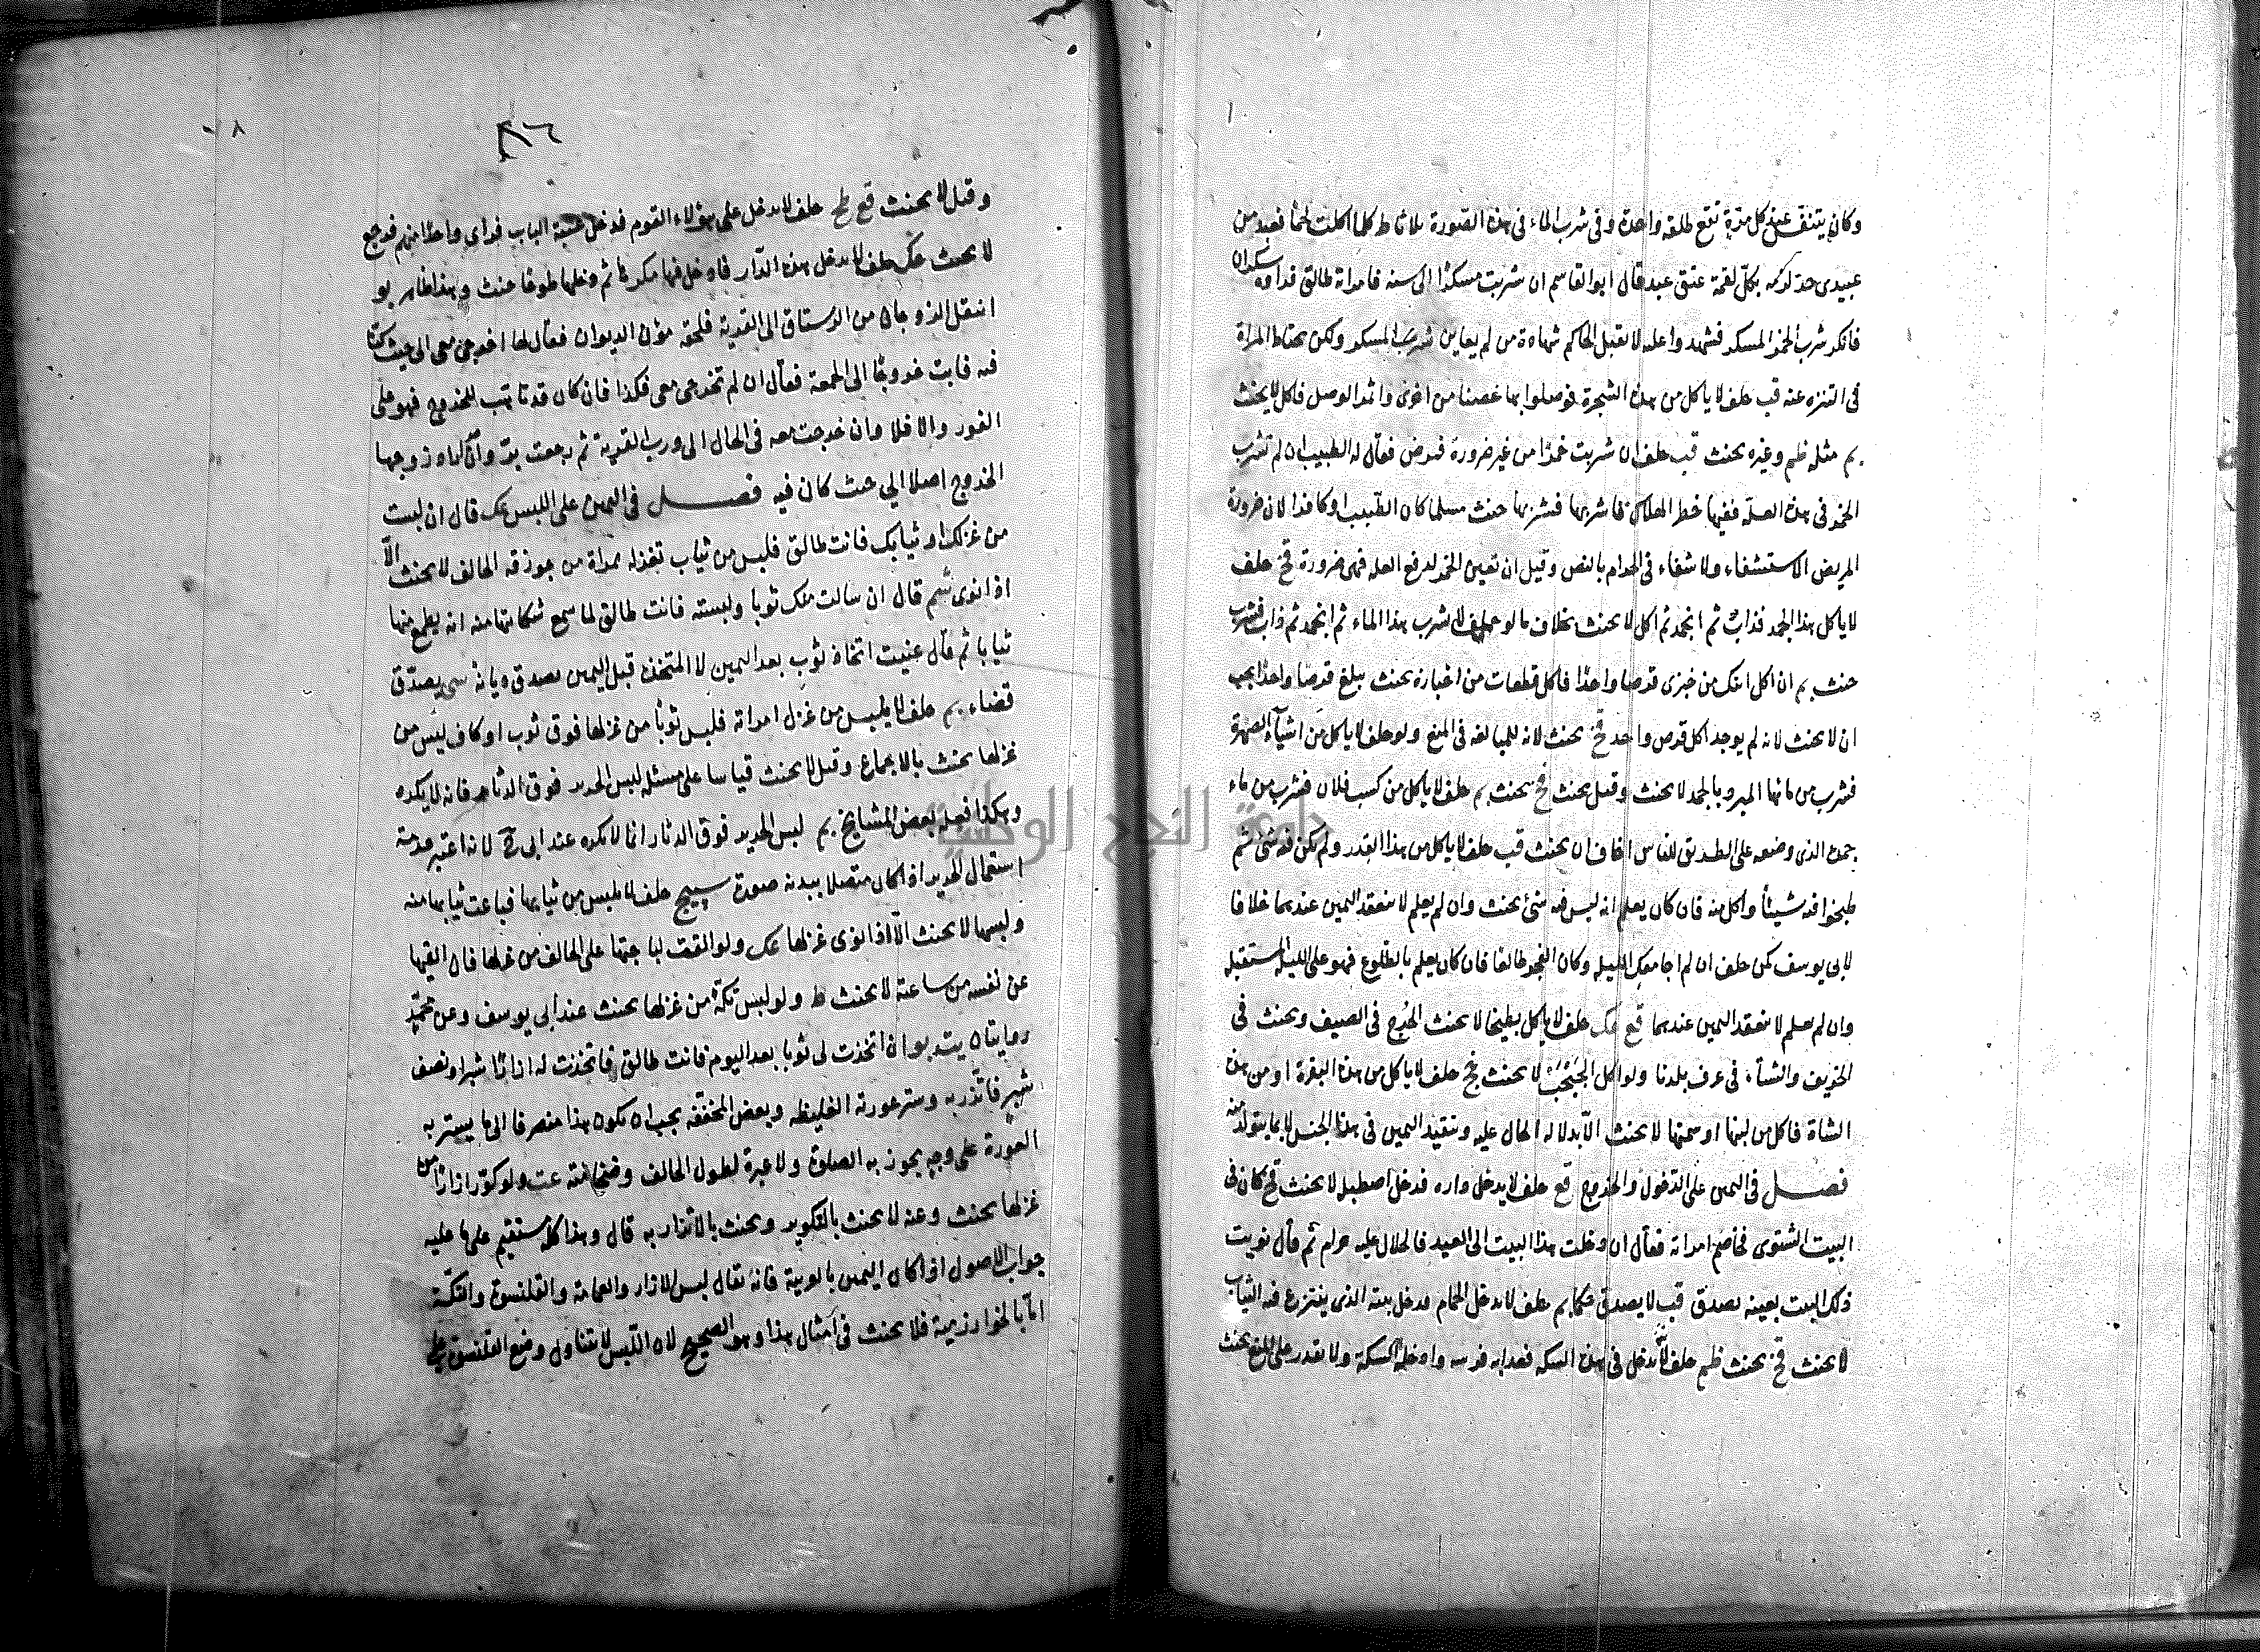 وكان يتنفس عند كل مرة تقع طلقة واحدة وفى شرب الماء فى هذه الصورة ثلاثا ط كلما اكلت لحما فعبد من
عبيدى حر بكل لقمة عتق عبد قال ابوالقاسم ان شربت مسكرا الى سنة فامراته طالق فراوه سكران
فانكر شرب الخمر المسكر فشهدوا عليه لا يقبل الحاكم شهادة من لم يعاين شرب المسكر ولكن يحتاط المراة
فى التنزه عنه قب حلف لا ياكل من هذه الشجرة فوصلوا بها غصنا من اخرى واثمر الوصل فاكل لا يحنث
بم مثله ظم وغيره يحنث قب حلف ان شربت خمرا من غير ضرورة فمرض فقال له الطبيب ان لم تشرب
الخمر فى هذه العلة ففيها خطر الهلاك فاشربها فشربها حنث مسلما كان الطبيب او كافرا لان ضرورة
المريض الاستشفاء ولا شفاء فى الحرام بالنص وقيل ان تعين الخمر لدفع العلة فهى ضرورة قخ حلف
لا ياكل هذا الجمد فذاب ثم انجمد ثم اكل لا يحنث بخلاف ما لو حلف لا يشرب هذا الماء ثم انجمد ثم ذاب فشرب
حنث بم ان اكل من خبزى قرصا واحدا فاكل قطعات من اخباره بحيث يبلغ قرصا واحدا يجب
ان لا يحنث لانه لم يوجد اكل قرص واحد قخ يحنث لانه للمبالغة فى المنع ولو حلف لا ياكل من اشياء الصهرة
فشرب من مائها المبرد بالجمد لا يحنث وقيل يحنث قخ يحنث بم حلف لا ياكل من كسب فلان فشرب من ماء
الذى وضعه على الطريق للناس اخاف ان يحنث قب حلف لا ياكل من هذا القدر ولم يكن فيه شئ ثم
طبخوا فيه شيئا واكل منه فان كان يعلم انه ليس فيه شئ يحنث وان لم يعلم لا ينعقد اليمين عندهما خلافا
لابى يوسف كمن حلف ان لم اجامعك الليلة وكان الفجر طالعا فان كان يعلم بالطلوع فهو على الليلة المستقبلة
وان لم يعلم لا ينعقد اليمين عندهما قع عك حلف لا ياكل بطيخا لا يحنث فى الصيف ويحنث فى
الخريف والشتاء فى عرف بلدنا ولو اكل لا يحنث قخ حلف لا ياكل من هذه البقرة او من هذه
الشاة فاكل من لبنها او سمنها لا يحنث الا بدلالة الحال عليه وتتقيد اليمين فى هذا الجنس لا بما يتولد منه
فصل فى اليمين على الدخول والخروج قع حلف لا يدخل داره فدخل اصطبل لا يحنث قخ كان فى
البيت الشتوى فخاصم امراته فقال ان دخلت هذا البيت الى العيد فالحلال عليه حرام ثم قال نويت
ذلك البيت بعينه يصدق قب لا يصدق حكما بم حلف لا يدخل الحمام فدخل بيته الذى ينتزع فيه الثياب
لا يحنث قخ يحنث ظم حلف لا يدخل فى هذه السكة فعدا به فرسه وادخله السكة ولا يقدر على المنع يحنث
وقيل لا يحنث قع طم حلف لا يدخل على هؤلاء القوم فدخل عتبة الباب فراى واحدا منهم فرجع
لا يحنث عك حلف لا يدخل هذه الدار فادخل فيها مكرها ثم دخلها طوعا حنث وهذا ظاهر بو
انتقل الزوجان من الرستاق الى القرية فلحقه مؤن الديوان فقال لها اخرجى معى الى حيث كنا
فيه فابت خروجا الى الجمعة فقال ان لم تخرجى معى فكذا فان كان قد تاهب للخروج فهو على
الفور والا فلا وان خرجت معه فى الحال الى درب القرية ثم رجعت بر وان اراد زوجها
الخروج اصلا الى حيث كان فيه فصل فى اليمين على اللبس عك قال ان لبست
من غزلك او ثيابك فانت طالق فلبس من ثياب تغزله امراة من جوزقة الحالف لا يحنث الا
اذا نوى شم قال ان سالت منك ثوبا ولبسته فانت طالق لما سمع شكايتها منه انه يطمع منها
ثيابا ثم قال عنيت اتخاذ ثوب بعد اليمين لا المتخذة قبل اليمين يصدق ديانة يصدق
قضاء بم حلف لا يلبس من غزل امراته فلبس ثوبا من غزلها فوق ثوب او كاف ليس من
غزلها يحنث بالاجماع وقيل لا يحنث قياسا على مسئلة لبس الحرير فوق الدثار فانه لا يكره
وهكذا فعله بعض المشايخ بم لبس الحرير فوق الدثار انما لا يكره عند ابى ح لانه اعتبر حرمة
استعمال الحرير اذا كان متصلا ببدنه صورة حلف لا يلبس من ثيابها فباعت ثيابها منه
ولبسها لا يحنث الا اذا نوى غزلها عك ولو القت لباجتها على الحالف من غزلها فان القيها
عن نفسه من ساعته لا يحنث ط ولو لبس تكة من غزلها يحنث عند ابى يوسف وعن محمد
روايتان ان اتخذت لى ثوبا بعد اليوم فانت طالق فاتخذت له ازارا شبرا ونصف
شبر فاتزر به وستر عورته الغليظة وبعض المخففة يجب ان يكون هذا منصرفا الى ما يستر به
العورة على وجه يجوز به الصلوة ولا عبرة لطول الحالف وضخامته عت ولو كور ازارا من
غزلها يحنث وعنه لا يحنث بالتكوير ويحنث بالاتزار به قال وهذا كله مستقيم على ما عليه
جواب الاصول اذا كان اليمين بالعربية فانه يقال لبس الازار والعمامة والقلنسوة والتكة
اما بالخوارزمية فلا يحنث فى امثال هذا وهو الصحيح لان اللبس لا يتناول وضع القلنسوة على
جامعة النجاح الوطنية